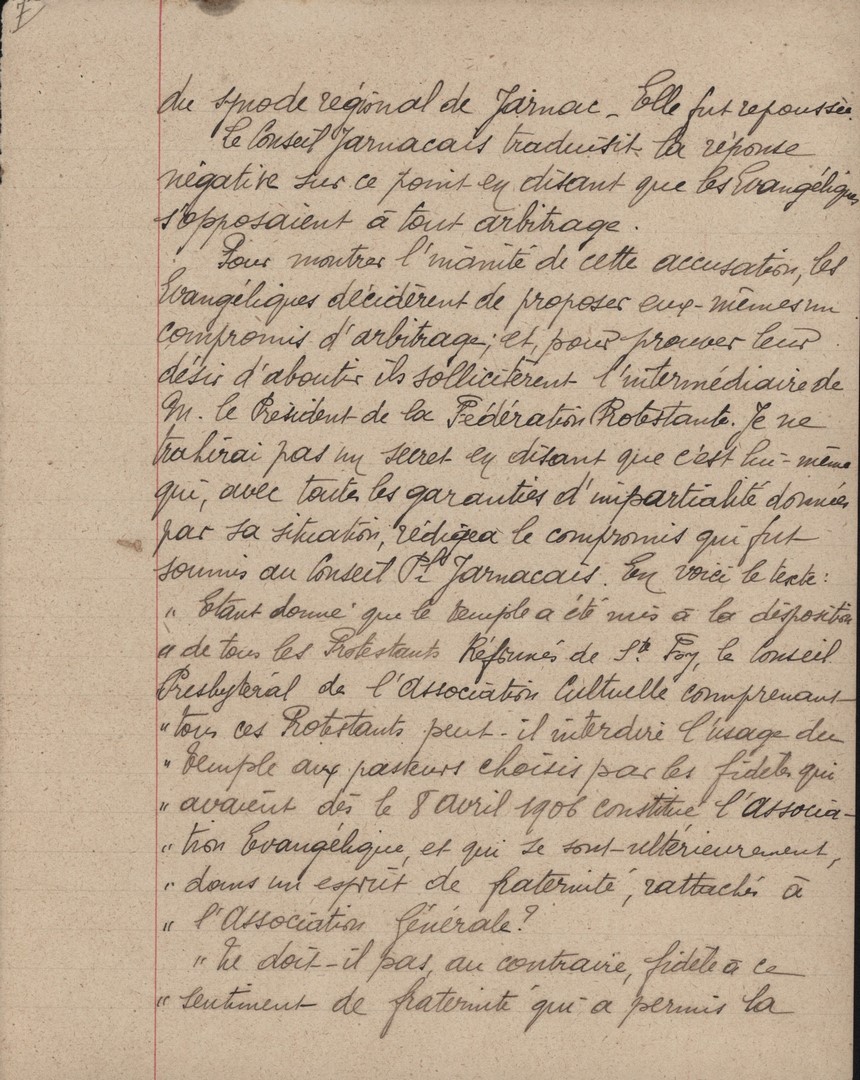 7
du synode régional de Jarnac _ Elle fut repoussée.
Le Conseil Jarnacais traduisit la réponse
négative sur ce point en disant que les Evangéliques
s'opposaient à tout arbitrage.
Pour montrer l'inanité de cette accusation, les
Evangéliques décidèrent de proposer eux-mêmes un
compromis d'arbitrage; et, pour prouver leur
désir d'aboutir ils sollicitèrent l'intermédiaire de
M. le Président de la Fédération Protestante. Je ne
trahirai pas un secret en disant que c'est lui-même
qui, avec toutes les garanties d'impartialité données
par sa situation, rédigea le compromis qui fut
soumis au Conseil Pral Jarnacais. En voici le texte:
" Etant donné que le temple a été mis à la disposition
" de tous les Protestants Réformés de Ste Foy, le Conseil
Presbytéral de l'Association Cultuelle comprenant
" tous ces Protestants peut-il interdire l'usage du
" temple aux pasteurs choisis par les fidèles qui
" avaient dès le 8 avril 1906 constitué l'Associa-
" tion Evangélique, et qui se sont ultérieurement,
" dans un esprit de fraternité, rattachés à
" l'Association Générale?
" Ne doit-il pas, au contraire, fidèle à ce
" sentiment de fraternité qui a permis la